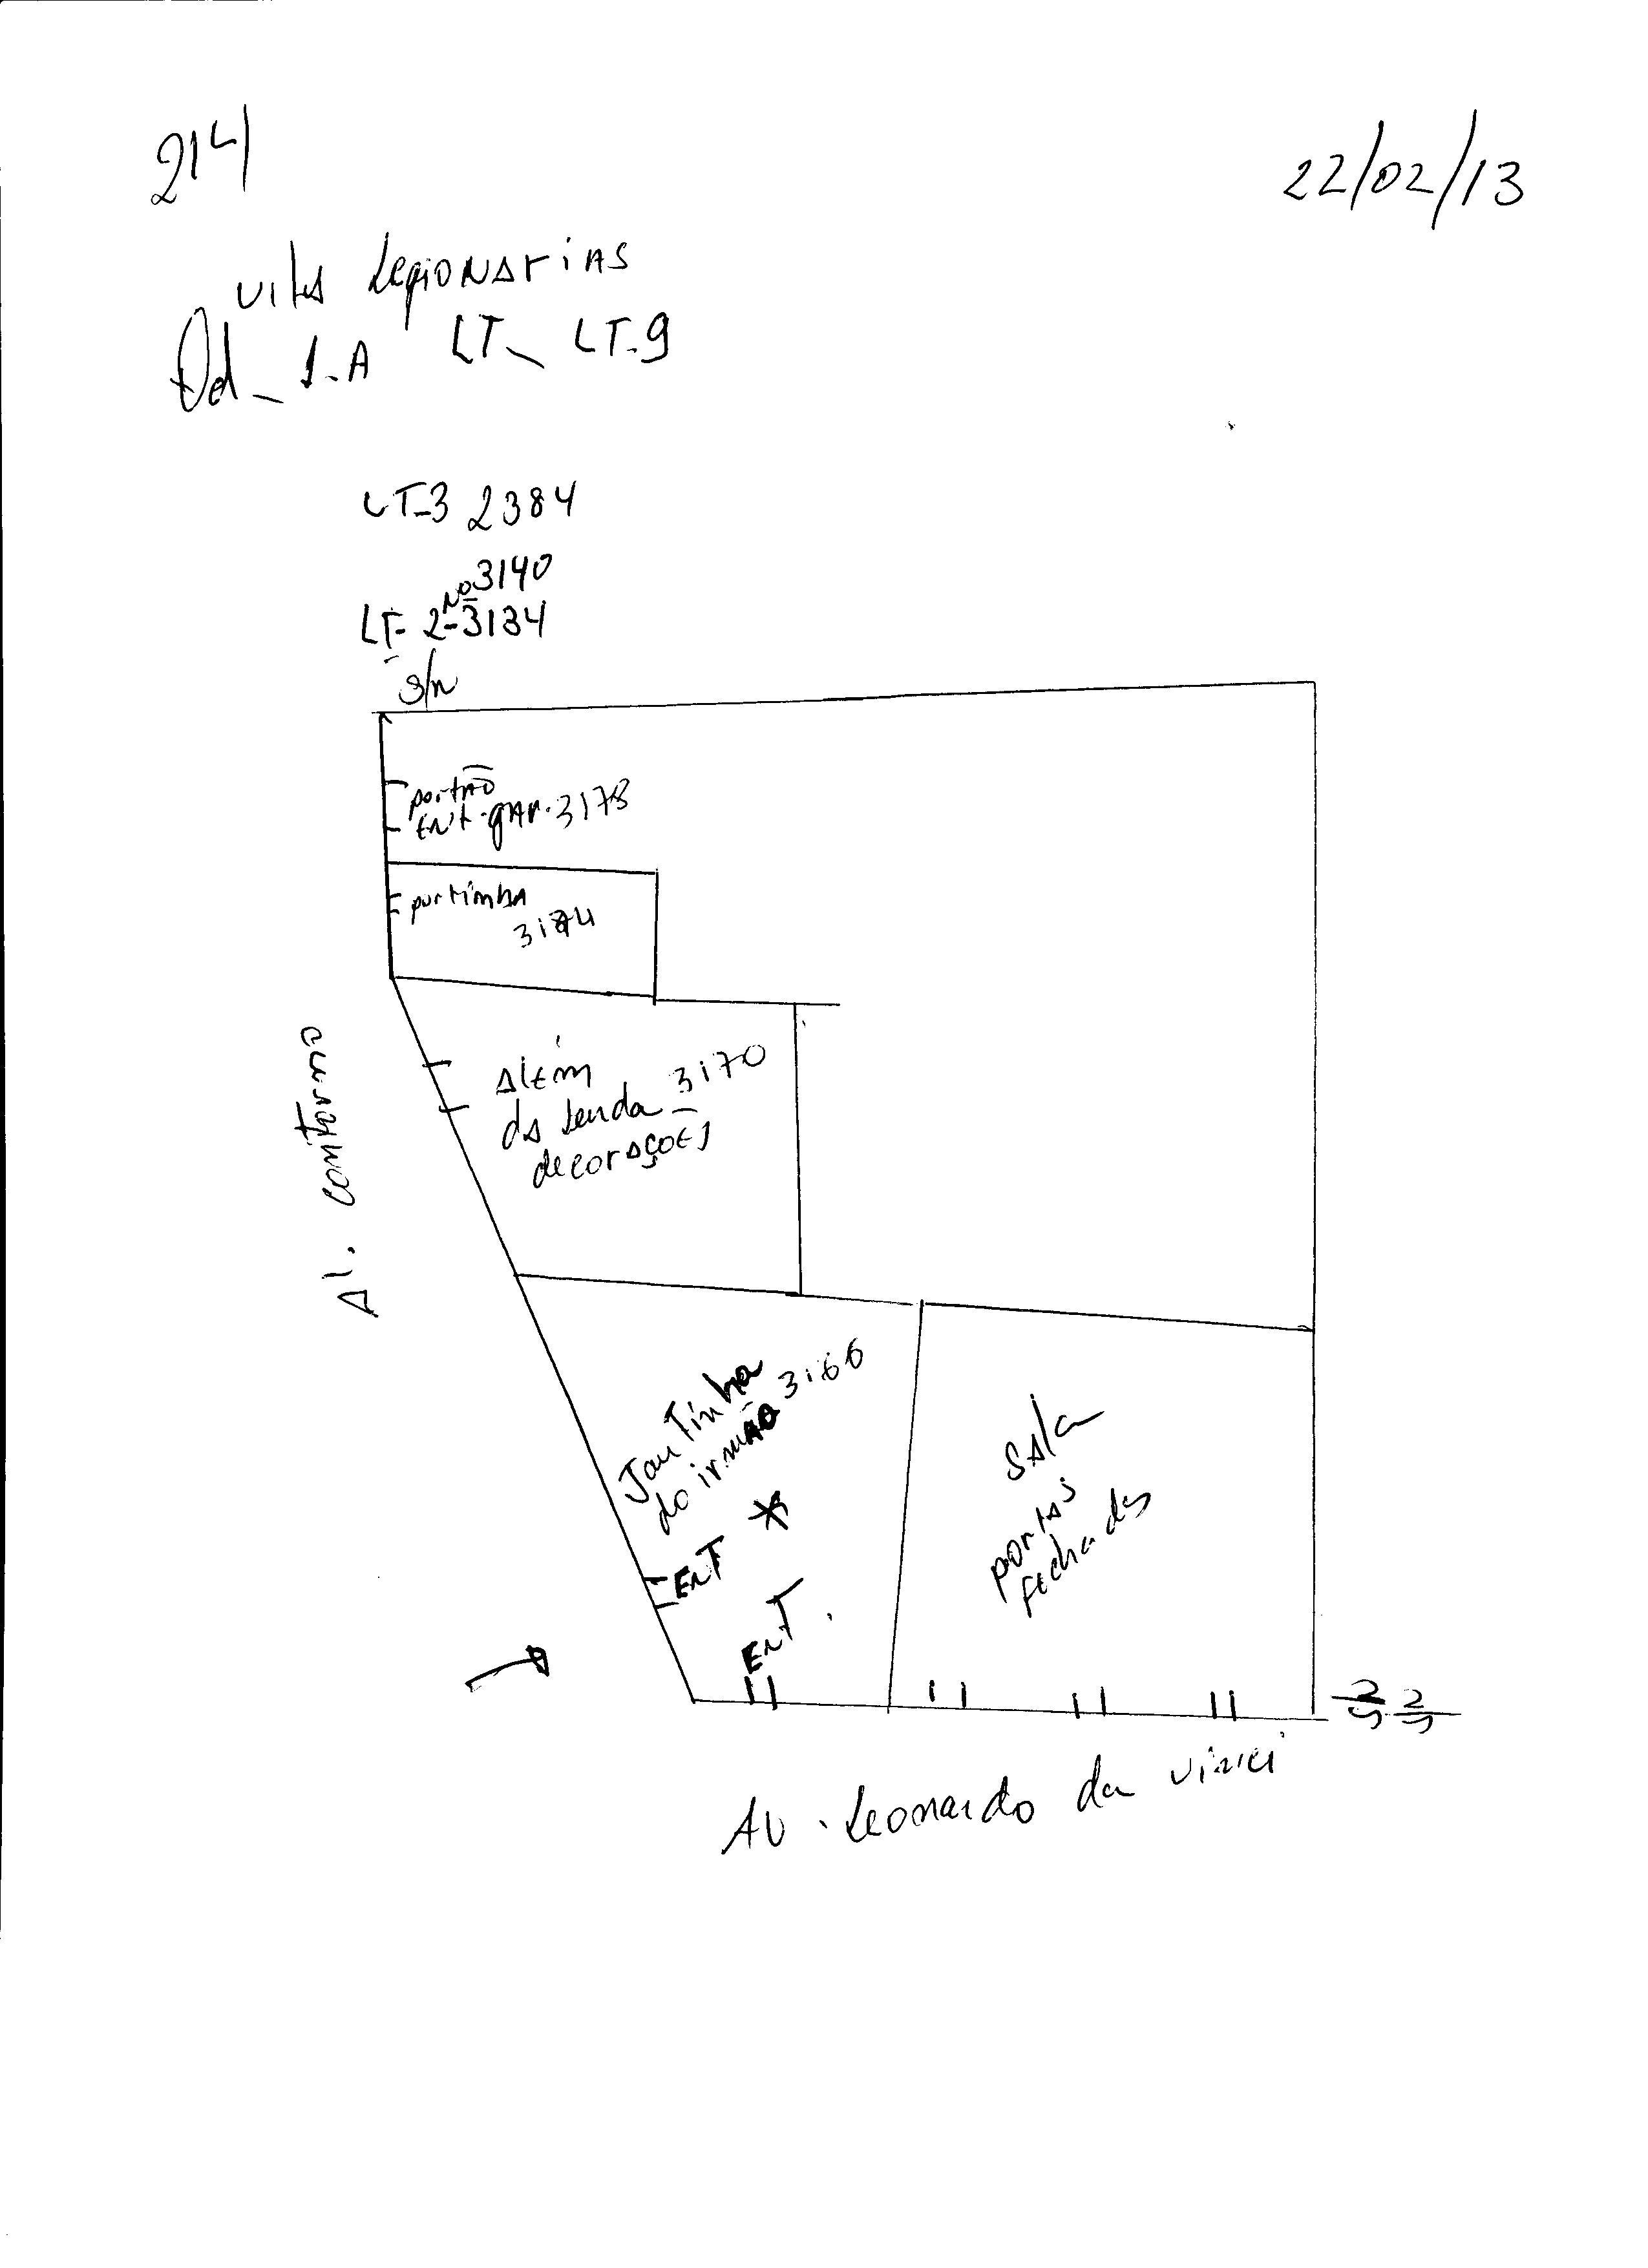 214
22/02/13
vila Legionarias
Qd_ 1-A LT_ LT-9
LT-3 2384
Nº 3140
LT- 2-3134
S/n
portão
ENt.gAr. 3178
portinha
3174
Além
da Lenda 3170
decorações
Al. contorno
JanTinha
do irmão 3166
ENT
ENT.
SAla
portas
fechadas
AV. Leonardo da vinci